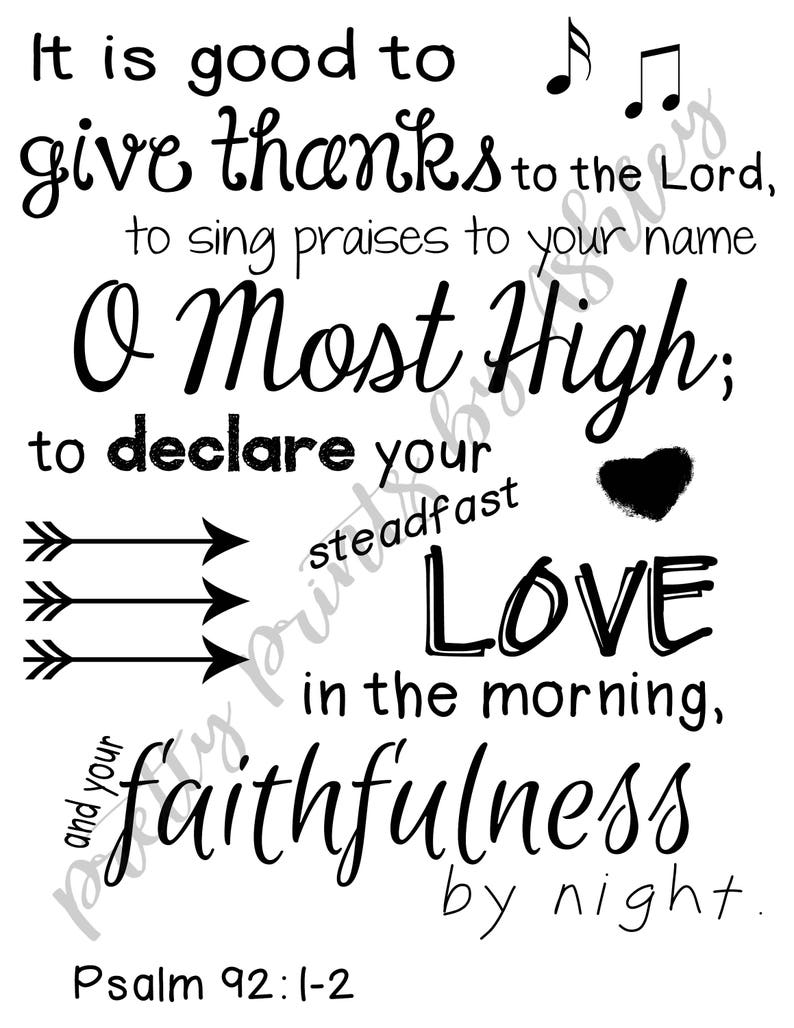 It is good to
give thanks to the Lord,
to sing praises to your name
O Most High;
to declare your
steadfast
LOVE
in the morning,
and your faithfulness
by night.
Psalm 92:1-2
pretty prints by Ashley